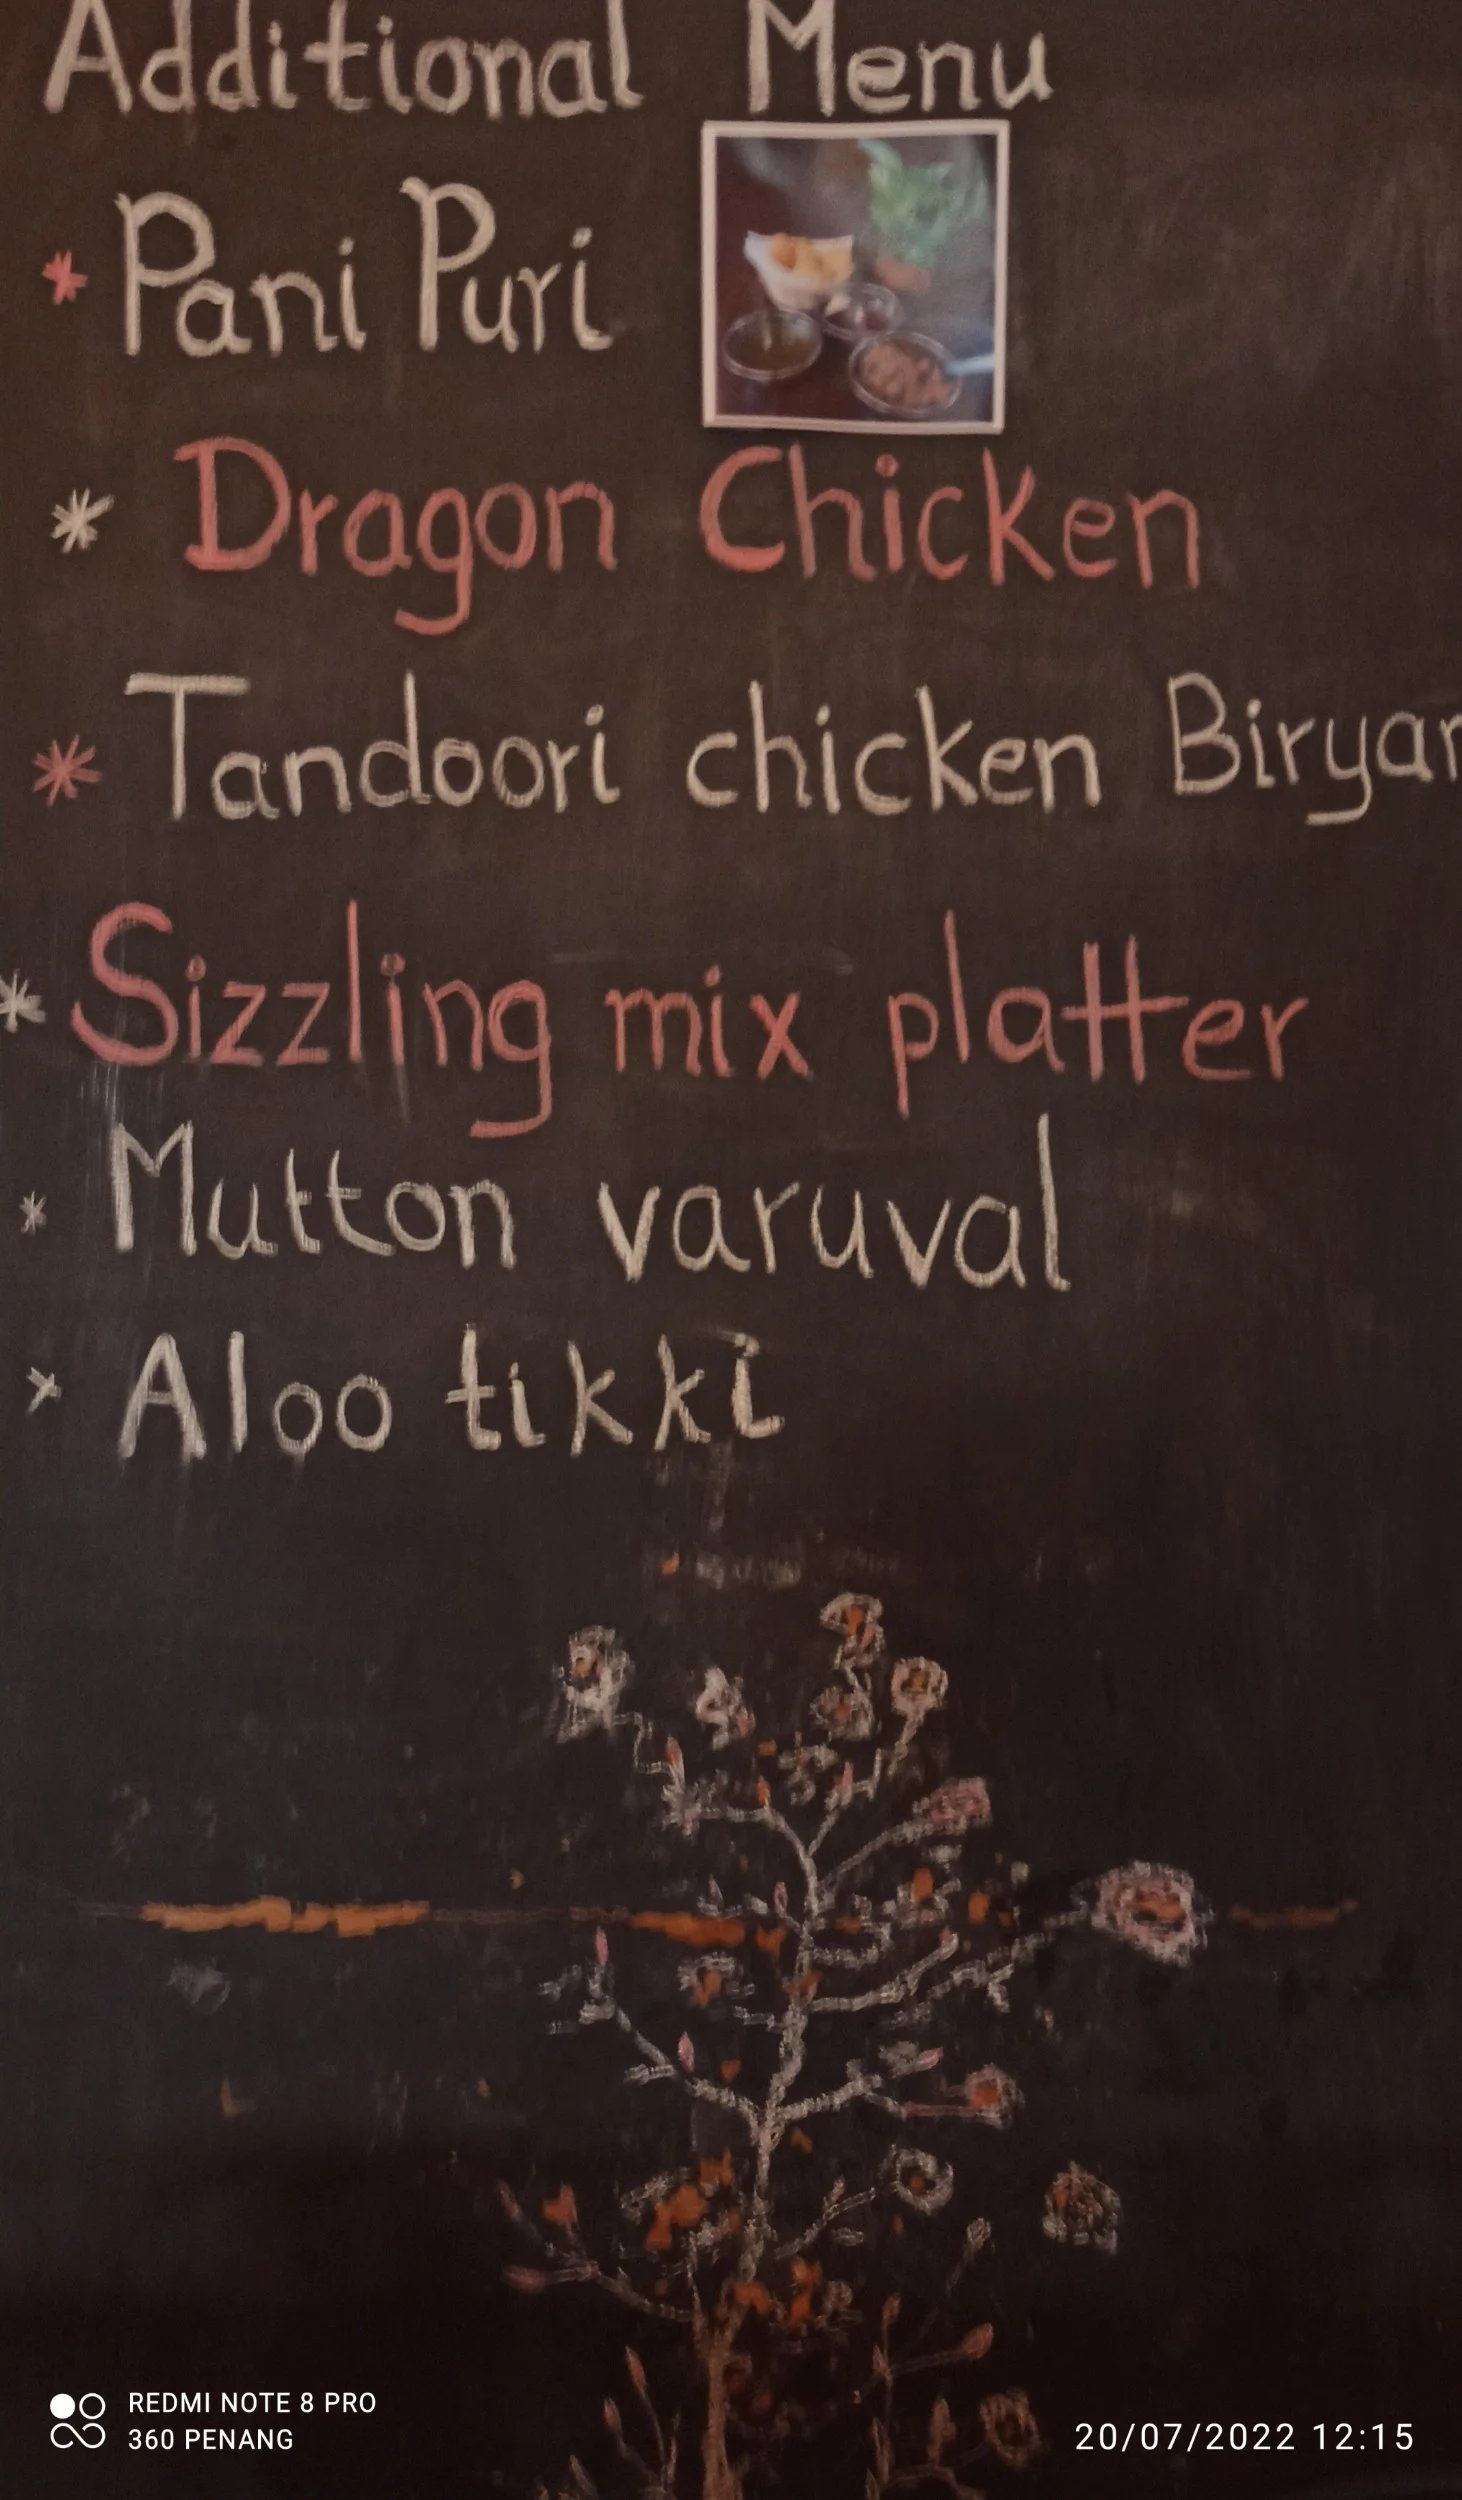 Additional Menu
* Pani Puri
* Dragon Chicken
* Tandoori chicken Biryan
* Sizzling mix platter
* Mutton varuval
* Aloo tikki
REDMI NOTE 8 PRO
360 PENANG
20/07/2022 12:15